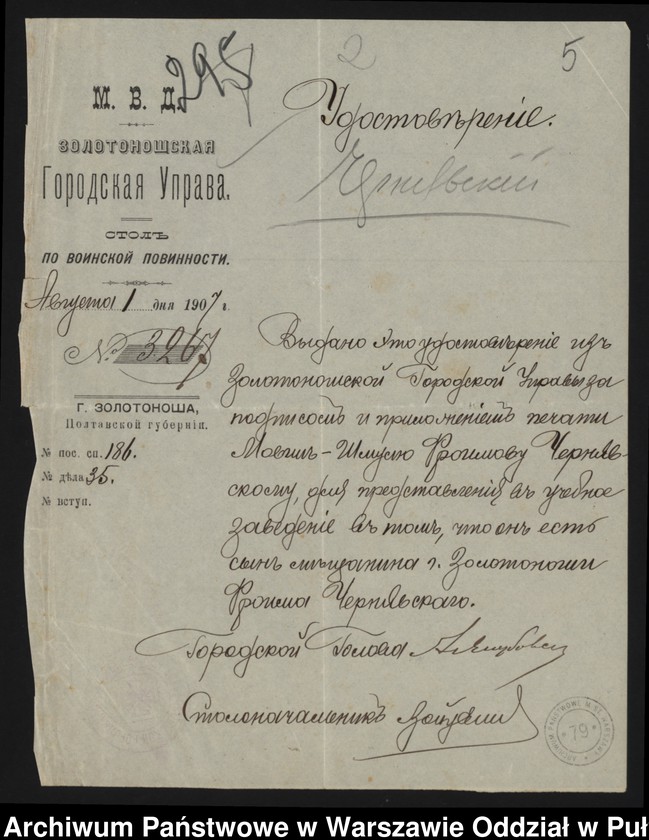 295
2
5
М. В. Д.
ЗОЛОТОНОШСКАЯ
Городская Управа.
СТОЛЪ
ПО ВОИНСКОЙ ПОВИННОСТИ.
Августа 1 дня 1907 г.
№ 3267
Г. ЗОЛОТОНОША,
Полтавской губерніи.
№ пос. сп. 186.
№ дѣла 35.
№ вступ.
Удостовѣреніе.
Выдано это удостовѣреніе изъ
Золотоношской Городской Управы за
подписомъ и приложеніемъ печати
Мовшѣ-Шмулю Фроимову Черняв-
скому, для представленія въ учебное
заведеніе въ томъ, что онъ есть
сынъ мѣщанина г. Золотоноши
Фроима Чернявскаго.
Городской Голова
Столоначальникъ
ARCHIWUM PAŃSTWOWE M. ST. WARSZAWY
79
Archiwum Państwowe w Warszawie Oddział w Puł